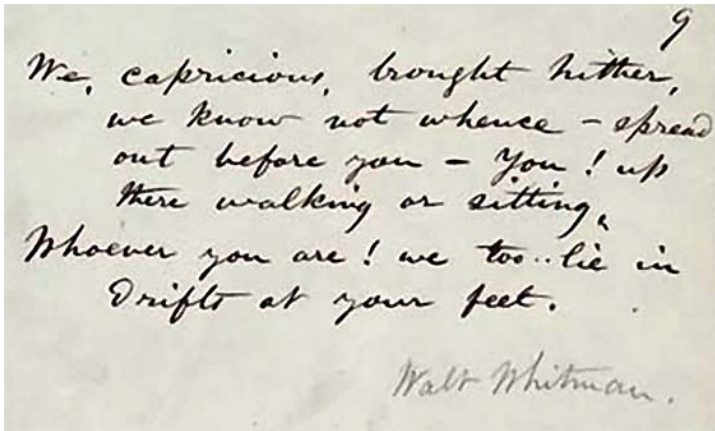 9
We, capricious, brought hither,
we know not whence – spread
out before you – You! up
there walking or sitting,
Whoever you are! we too.. lie in
drifts at your feet.
Walt Whitman.